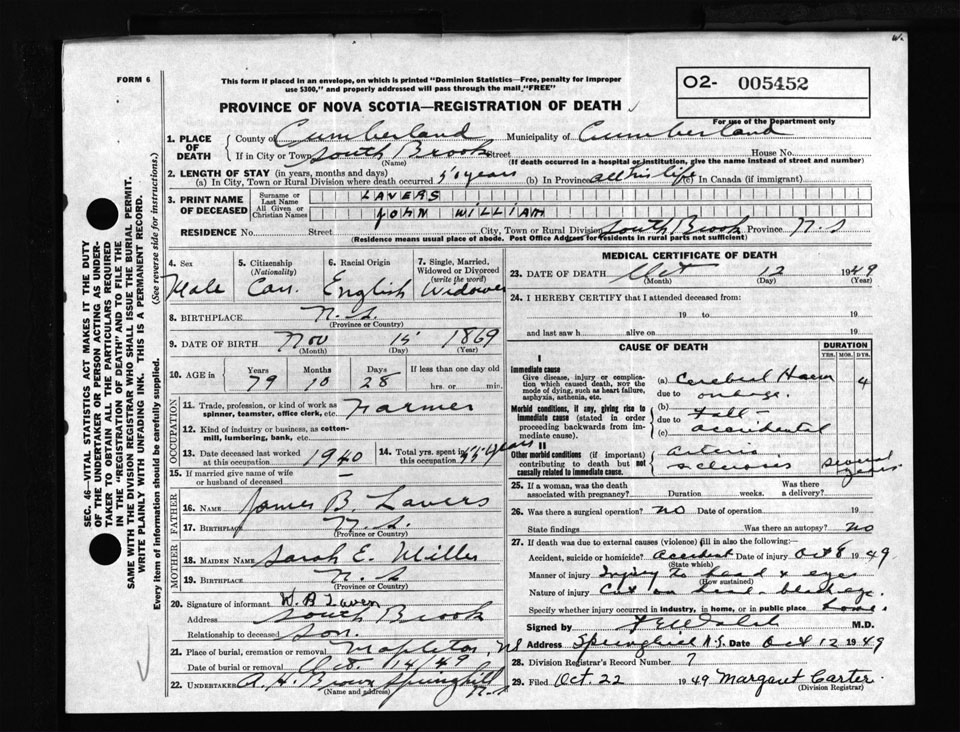 W.
FORM 6
This form if placed in an envelope, on which is printed "Dominion Statistics—Free, penalty for improper
use $300," and properly addressed will pass through the mail "FREE"
O2- 005452
For use of the Department only
PROVINCE OF NOVA SCOTIA—REGISTRATION OF DEATH
1. PLACE OF DEATH County of Cumberland Municipality of Cumberland
If in City or Town South Brook Street House No.
(Name) (If death occurred in a hospital or institution, give the name instead of street and number)
2. LENGTH OF STAY (in years, months and days)
(a) In City, Town or Rural Division where death occurred 50 years (b) In Province all his life (c) In Canada (if immigrant)
3. PRINT NAME OF DECEASED Surname or Last Name LAVERS
All Given or Christian Names JOHN WILLIAM
RESIDENCE No. Street City, Town or Rural Division South Brook Province N.S
(Residence means usual place of abode. Post Office Address for residents in rural parts not sufficient)
SEC. 46—VITAL STATISTICS ACT MAKES IT THE DUTY
OF THE UNDERTAKER OR PERSON ACTING AS UNDER-
TAKER TO OBTAIN ALL THE PARTICULARS REQUIRED
IN THE "REGISTRATION OF DEATH" AND TO FILE THE
SAME WITH THE DIVISION REGISTRAR WHO SHALL ISSUE THE BURIAL PERMIT.
WRITE PLAINLY WITH UNFADING INK. THIS IS A PERMANENT RECORD.
Every item of information should be carefully supplied. (See reverse side for instructions.)
4. Sex Male
5. Citizenship (Nationality) Can.
6. Racial Origin English
7. Single, Married, Widowed or Divorced (write the word) Widower
8. BIRTHPLACE N.S.
(Province or Country)
9. DATE OF BIRTH Nov 15 1869
(Month) (Day) (Year)
10. AGE in Years 79 Months 10 Days 28 If less than one day old hrs. or min.
OCCUPATION
11. Trade, profession, or kind of work as spinner, teamster, office clerk, etc. Farmer
12. Kind of industry or business, as cotton-mill, lumbering, bank, etc.
13. Date deceased last worked at this occupation 1940
14. Total yrs. spent in this occupation 55 years
15. If married give name of wife or husband of deceased —
FATHER
16. NAME James B. Lavers
17. BIRTHPLACE N.S.
(Province or Country)
MOTHER
18. MAIDEN NAME Sarah E. Miller
19. BIRTHPLACE N.S
(Province or Country)
20. Signature of informant W. A Lavers
Address South Brook
Relationship to deceased Son.
21. Place of burial, cremation or removal Mapleton, NS
Date of burial or removal Oct. 14/49
22. UNDERTAKER A. H. Brown Springhill N.S
(Name and address)
MEDICAL CERTIFICATE OF DEATH
23. DATE OF DEATH Oct 12 1949
(Month) (Day) (Year)
24. I HEREBY CERTIFY that I attended deceased from:
19 to 19
and last saw h alive on 19
CAUSE OF DEATH DURATION
YRS. MOS. DYS.
I
Immediate cause
Give disease, injury or complication which caused death, not the mode of dying, such as heart failure, asphyxia, asthenia, etc.
(a) Cerebral Haem 4
due to orrhage.
Morbid conditions, if any, giving rise to immediate cause (stated in order proceeding backwards from immediate cause).
(b) Fall—
due to
(c) accidental
II
Other morbid conditions (if important) contributing to death but not causally related to immediate cause.
arterio sclerosis several years.
25. If a woman, was the death associated with pregnancy? Duration weeks. Was there a delivery?
26. Was there a surgical operation? NO Date of operation 19
State findings Was there an autopsy? NO
27. If death was due to external causes (violence) fill in also the following:—
Accident, suicide or homicide? Accident Date of injury Oct 8 1949
(State which)
Manner of injury Injury to head & eyes
(How sustained)
Nature of injury Cut on head
Specify whether injury occurred in industry, in home, or in public place home.
Signed by Walsh M.D.
Address Springhill N.S. Date Oct 12 1949
28. Division Registrar's Record Number 7
29. Filed Oct. 22 1949 Margaret Carter
(Division Registrar)